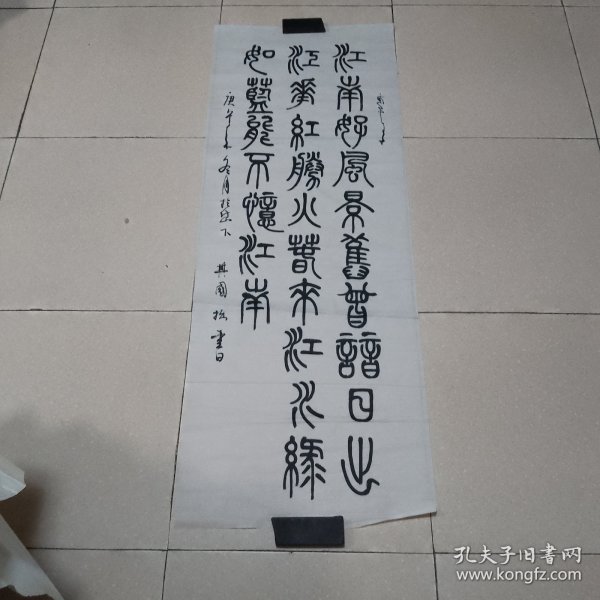 江南好風景舊曾諳日出
江花紅勝火春來江水綠
如藍能不憶江南
庚午年冬月於
下
國 書
孔夫子旧书网
www.kongfz.com